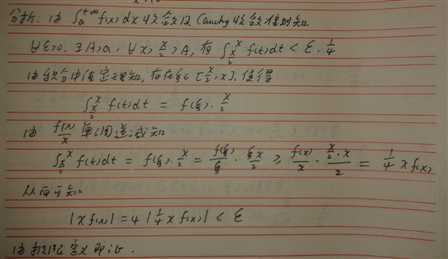 分析: 由 ∫_a^{+∞} f(x)dx 收敛及 Cauchy 收敛准则知
∀ε>0, ∃A>a, ∀x>x/2≥A, 有 ∫_{x/2}^x f(t)dt < ε·1/4
由积分中值定理知, 存在ξ∈[x/2,x], 使得
∫_{x/2}^x f(t)dt = f(ξ)·x/2
由 f(x)/x 单调递减知
∫_{x/2}^x f(t)dt = f(ξ)·x/2 = f(ξ)/ξ · ξx/2 ≥ f(x)/x · (x/2·x)/2 = 1/4 x f(x)
从而可知
|xf(x)| = 4|1/4 xf(x)| < ε
由极限定义即证.